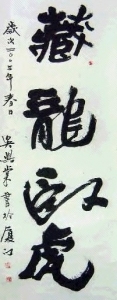 藏龍臥虎
歲次二〇〇三年春日
吳興業書於廈門